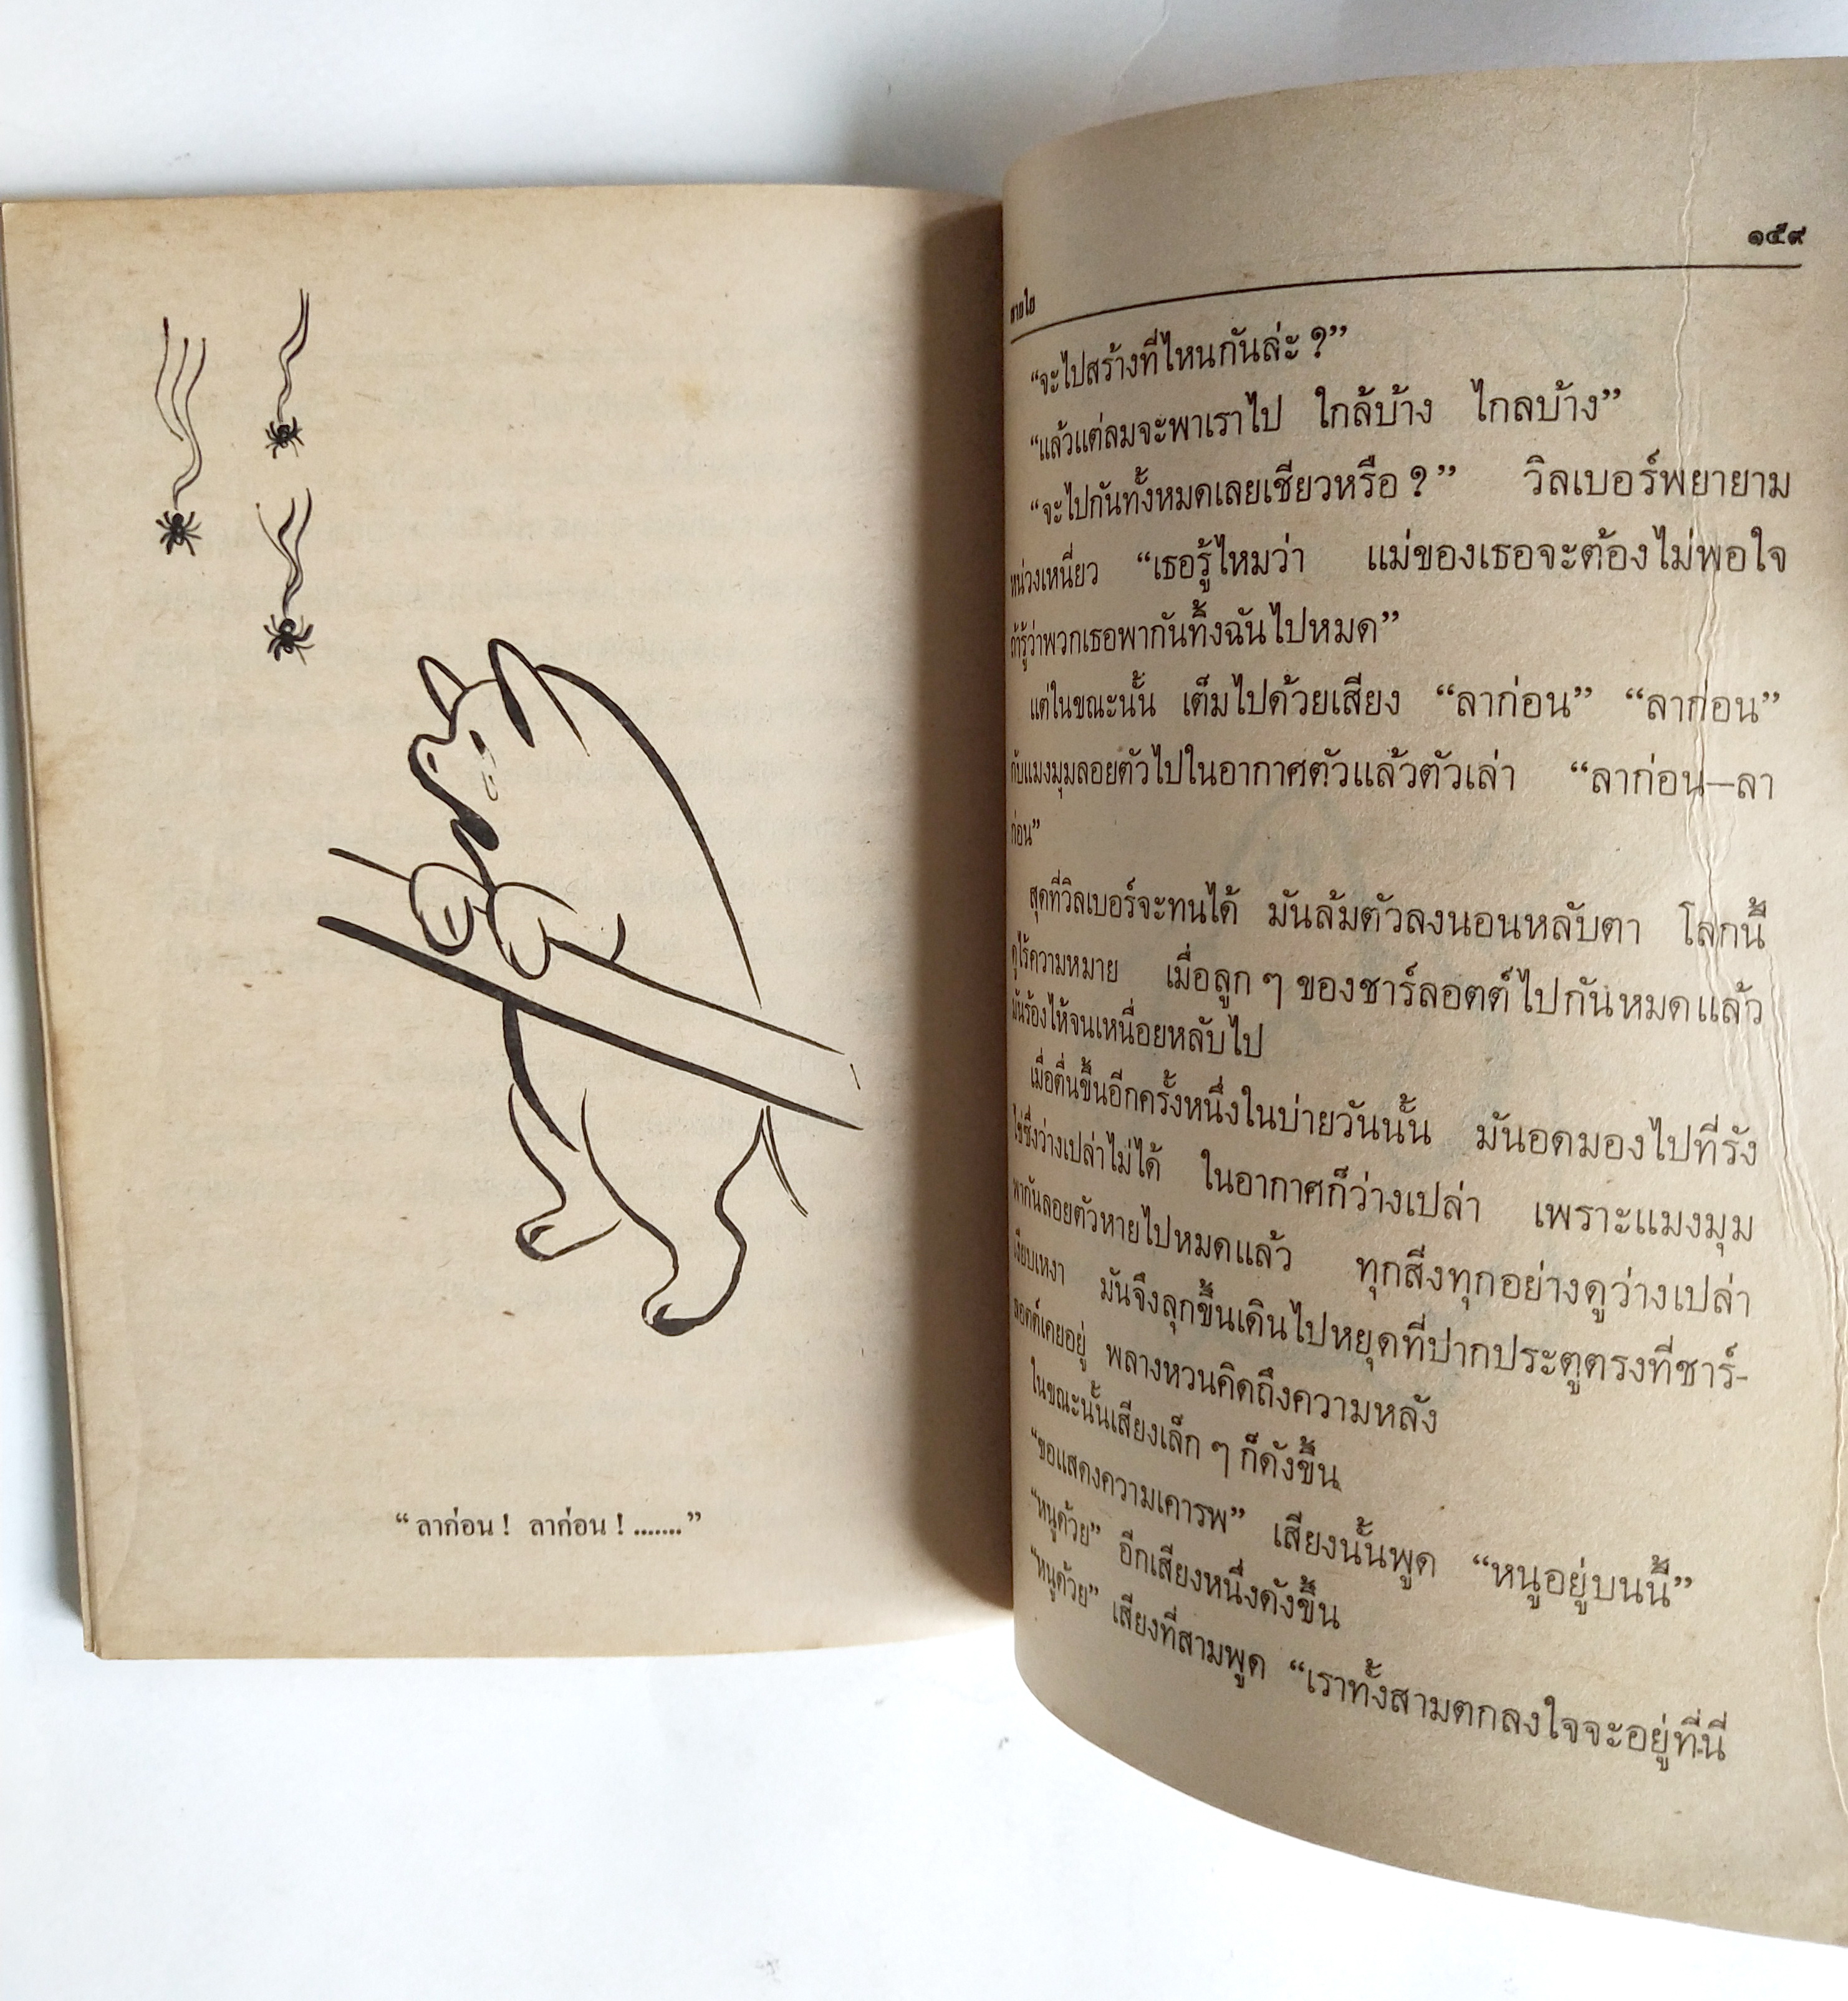 “ ลาก่อน ! ลาก่อน ! ....... ”
๑๕๙
สายใย
“จะไปสร้างที่ไหนกันล่ะ ?”
“แล้วแต่ลมจะพาเราไป ใกล้บ้าง ไกลบ้าง”
“จะไปกันทั้งหมดเลยเชียวหรือ ?” วิลเบอร์พยายาม
หน่วงเหนี่ยว “เธอรู้ไหมว่า แม่ของเธอจะต้องไม่พอใจ
ถ้ารู้ว่าพวกเธอพากันทิ้งฉันไปหมด”
แต่ในขณะนั้น เต็มไปด้วยเสียง “ลาก่อน” “ลาก่อน”
กับแมงมุมลอยตัวไปในอากาศตัวแล้วตัวเล่า “ลาก่อน—ลา
ก่อน”
สุดที่วิลเบอร์จะทนได้ มันล้มตัวลงนอนหลับตา โลกนี้
ดูไร้ความหมาย เมื่อลูก ๆ ของชาร์ลอตต์ไปกันหมดแล้ว
มันร้องไห้จนเหนื่อยหลับไป
เมื่อตื่นขึ้นอีกครั้งหนึ่งในบ่ายวันนั้น มันอดมองไปที่รัง
ไข่ซึ่งว่างเปล่าไม่ได้ ในอากาศก็ว่างเปล่า เพราะแมงมุม
พากันลอยตัวหายไปหมดแล้ว ทุกสิ่งทุกอย่างดูว่างเปล่า
เงียบเหงา มันจึงลุกขึ้นเดินไปหยุดที่ปากประตูตรงที่ชาร์-
ลอตต์เคยอยู่ พลางหวนคิดถึงความหลัง
ในขณะนั้นเสียงเล็ก ๆ ก็ดังขึ้น
“ขอแสดงความเคารพ” เสียงนั้นพูด “หนูอยู่บนนี้”
“หนูด้วย” อีกเสียงหนึ่งดังขึ้น
“หนูด้วย” เสียงที่สามพูด “เราทั้งสามตกลงใจจะอยู่ที่นี่